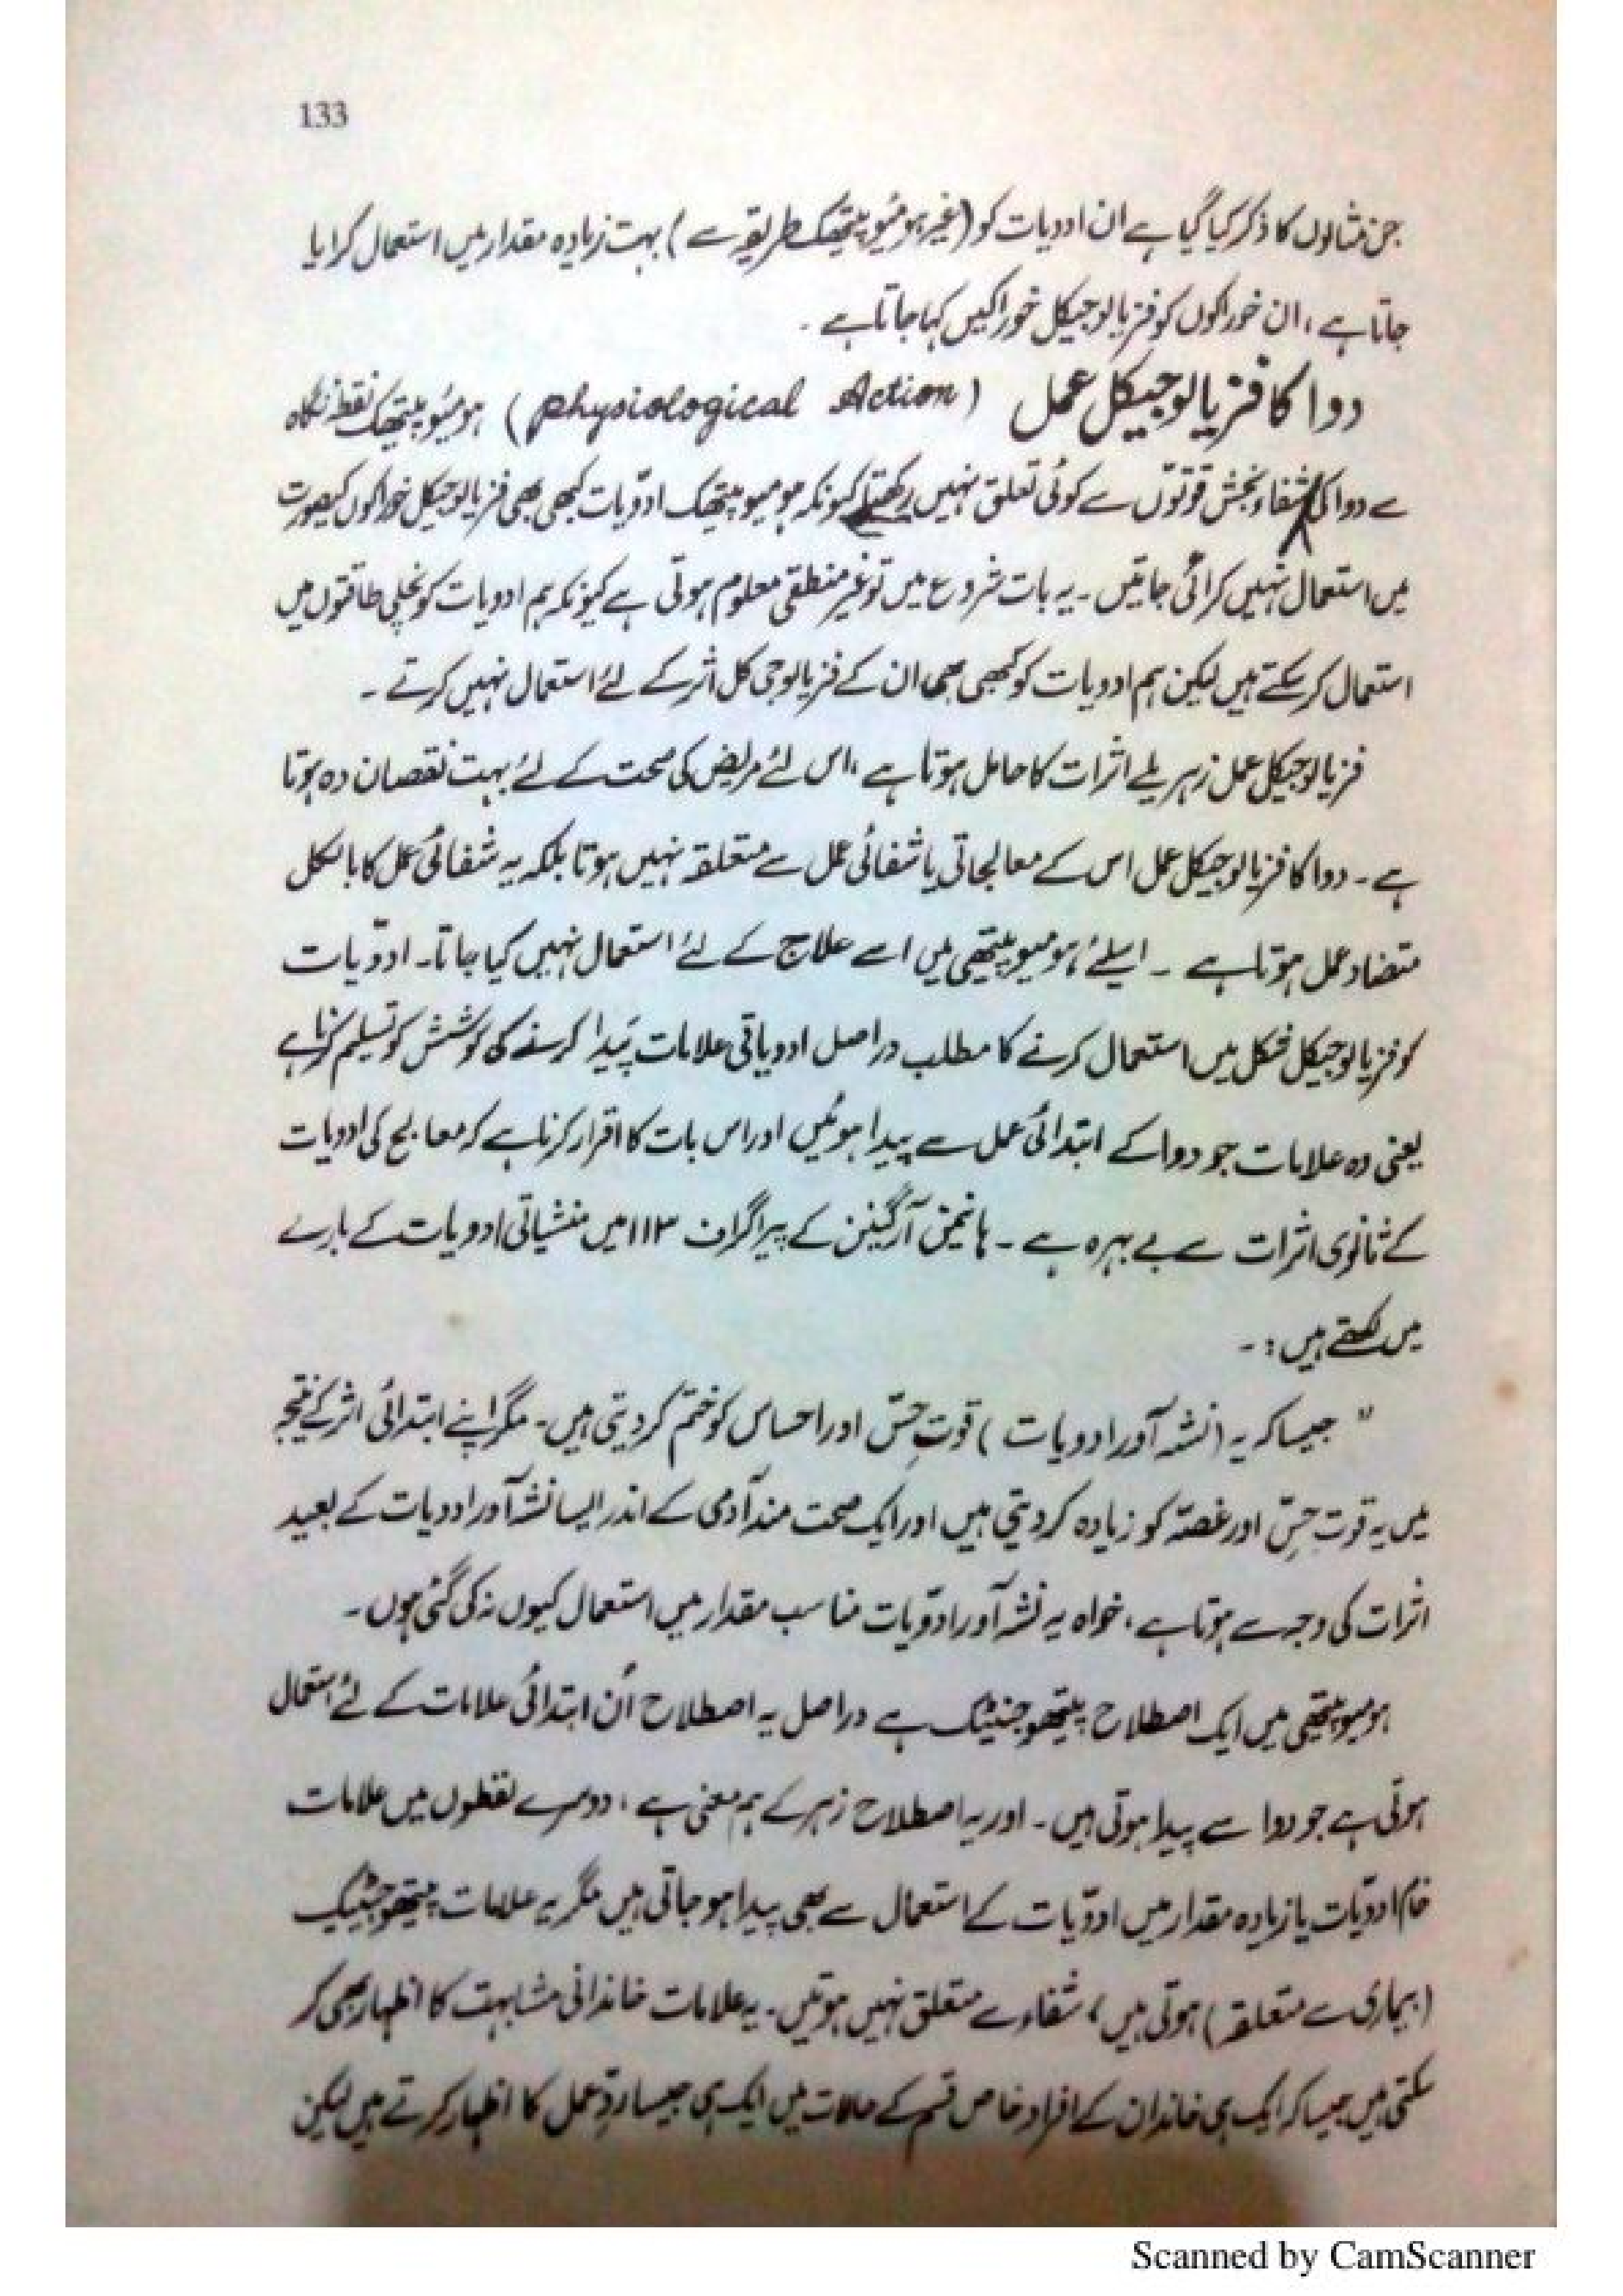 133
جن مثالوں کا ذکر کیا گیا ہے ان ادویات کو (غیر ہومیوپیتھک طریقہ سے) بہت زیادہ مقدار میں استعمال کرایا
جاتا ہے، ان خوراکوں کو فزیالوجیکل خوراکیں کہا جاتا ہے۔
دوا کا فزیالوجیکل عمل (Physiological Action) ہومیوپیتھک نقطہ نگاہ
سے دوا کی شفاء بخش قوتوں سے کوئی تعلق نہیں رکھتا کیونکہ ہومیوپیتھک ادویات کبھی بھی فزیالوجیکل خوراکوں کیصورت
میں استعمال نہیں کرائی جاتیں۔ یہ بات شروع میں تو غیر منطقی معلوم ہوتی ہے کیونکہ ہم ادویات کو نچلی طاقتوں میں
استعمال کر سکتے ہیں لیکن ہم ادویات کو کبھی بھی ان کے فزیالوجی کل اثر کے لئے استعمال نہیں کرتے۔
فزیالوجیکل عمل زہریلے اثرات کا حامل ہوتا ہے، اس لئے مریض کی صحت کے لئے بہت نقصان دہ ہوتا
ہے۔ دوا کا فزیالوجیکل عمل اس کے معالجاتی یا شفائی عمل سے متعلقہ نہیں ہوتا بلکہ یہ شفائی عمل کا بالکل
متضاد عمل ہوتا ہے۔ اسلئے ہومیوپیتھی میں اسے علاج کے لئے استعمال نہیں کیا جاتا۔ ادویات
کو فزیالوجیکل شکل میں استعمال کرنے کا مطلب دراصل ادویاتی علامات پیدا کرنے کی کوشش کو تسلیم کرنا ہے
یعنی وہ علامات جو دوا کے ابتدائی عمل سے پیدا ہوئیں اور اس بات کا اقرار کرنا ہے کہ معالج کی ادویات
کے ثانوی اثرات سے بے بہرہ ہے۔ ہانیمن آرگینن کے پیراگراف ۱۱۳ میں منشیاتی ادویات کے بارے
میں لکھتے ہیں:۔
" جیسا کہ یہ (نشہ آور ادویات) قوتِ حِسّ اور احساس کو ختم کر دیتی ہیں۔ مگر اپنے ابتدائی اثر کے نتیجہ
میں یہ قوتِ حِسّ اور غصّہ کو زیادہ کر دیتی ہیں اور ایک صحت مند آدمی کے اندر ایسا نشہ آور ادویات کے بعید
اثرات کی وجہ سے ہوتا ہے، خواہ یہ نشہ آور ادویات مناسب مقدار میں استعمال کیوں نہ کی گئی ہوں۔
ہومیوپیتھی میں ایک اصطلاح پیتھوجنیٹک ہے دراصل یہ اصطلاح اُن ابتدائی علامات کے لئے استعمال
ہوتی ہے جو دوا سے پیدا ہوتی ہیں۔ اور یہ اصطلاح زہر کے ہم معنی ہے، دوسرے لفظوں میں علامات
خام ادویات یا زیادہ مقدار میں ادویات کے استعمال سے بھی پیدا ہو جاتی ہیں مگر یہ علامات پیتھوجنیٹک
(بیماری سے متعلقہ) ہوتی ہیں، شفاء سے متعلق نہیں ہوتیں۔ یہ علامات خاندانی مشابہت کا اظہار بھی کر
سکتی ہیں جیسا کہ ایک ہی خاندان کے افراد خاص قسم کے حالات میں ایک ہی جیسا ردِّ عمل کا اظہار کرتے ہیں لیکن
Scanned by CamScanner